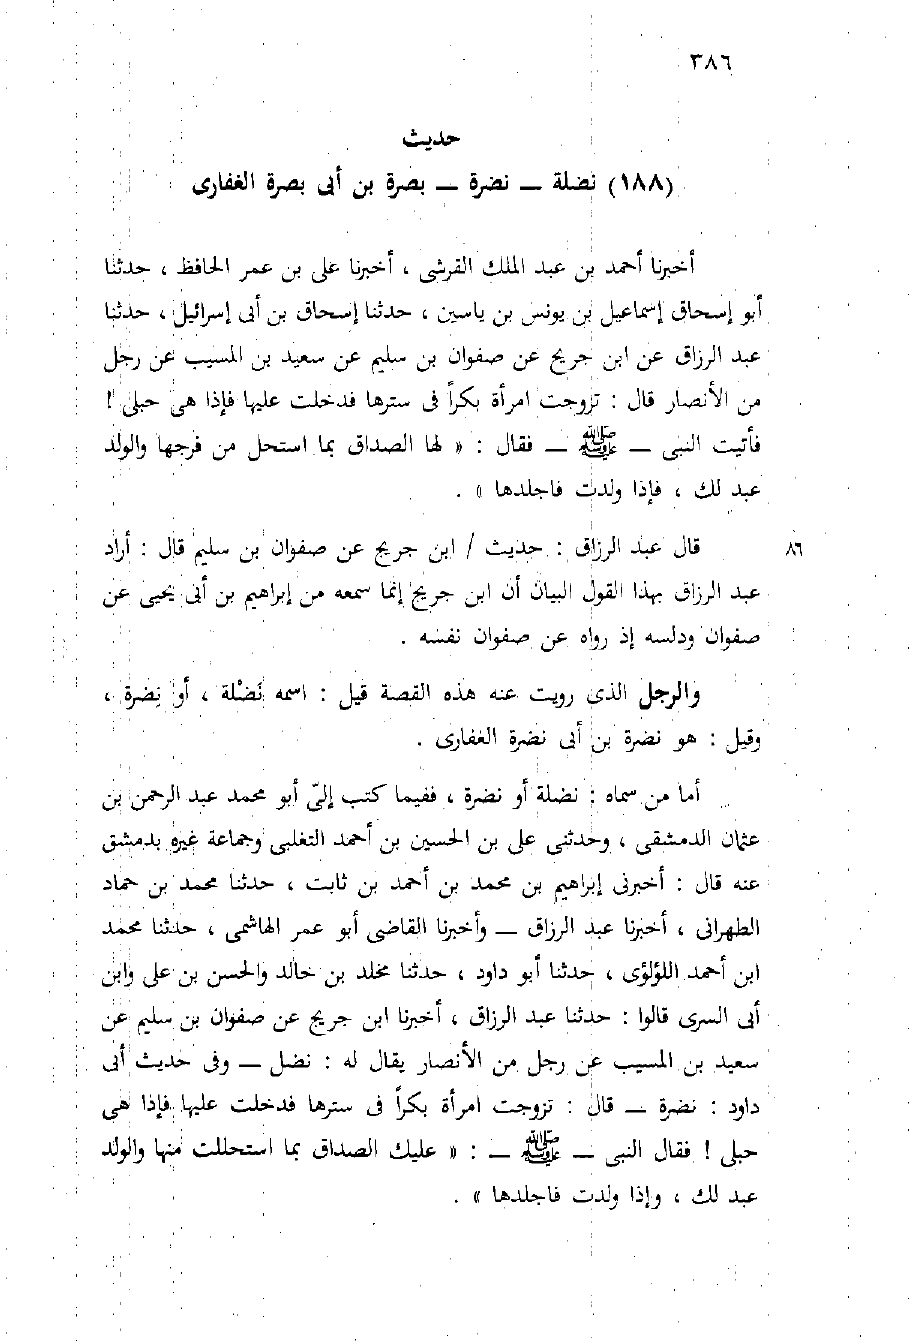 ٣٨٦
حديث
(١٨٨) نضلة ــ نضرة ــ بصرة بن أبى بصرة الغفارى
أخبرنا أحمد بن عبد الملك القرشى ، أخبرنا على بن عمر الحافظ ، حدثنا
أبو إسحاق إسماعيل بن يونس بن ياسين ، حدثنا إسحاق بن أبى إسرائيل ، حدثنا
عبد الرزاق عن ابن جريج عن صفوان بن سليم عن سعيد بن المسيب عن رجل
من الأنصار قال : تزوجت امرأة بكراً فى سترها فدخلت عليها فإذا هى حبلى !
فأتيت النبى ــ ﷺ ــ فقال : « لها الصداق بما استحل من فرجها والولد
عبد لك ، فإذا ولدت فاجلدها » .
قال عبد الرزاق : حديث / ابن جريج عن صفوان بن سليم قال : أراد ٨٦
عبد الرزاق بهذا القول البيان أن ابن جريج إنما سمعه من إبراهيم بن أبى يحيى عن
صفوان ودلسه إذ رواه عن صفوان نفسه .
والرجل الذى رويت عنه هذه القصة قيل : اسمه نَضْلة ، أو نضرة ،
وقيل : هو نضرة بن أبى نضرة الغفارى .
أما من سماه : نضلة أو نضرة ، ففيما كتب إلىّ أبو محمد عبد الرحمن بن
عثمان الدمشقى ، وحدثنى على بن الحسين بن أحمد التغلبى وجماعة غيره بدمشق
عنه قال : أخبرنى إبراهيم بن محمد بن أحمد بن ثابت ، حدثنا محمد بن حماد
الطهرانى ، أخبرنا عبد الرزاق ــ وأخبرنا القاضى أبو عمر الهاشمى ، حدثنا محمد
ابن أحمد اللؤلؤى ، حدثنا أبو داود ، حدثنا مخلد بن خالد والحسن بن على وابن
أبى السرى قالوا : حدثنا عبد الرزاق ، أخبرنا ابن جريج عن صفوان بن سليم عن
سعيد بن المسيب عن رجل من الأنصار يقال له : نضل ــ وفى حديث أبى
داود : نضرة ــ قال : تزوجت امرأة بكراً فى سترها فدخلت عليها فإذا هى
حبلى ! فقال النبى ــ ﷺ ــ : « عليك الصداق بما استحللت منها والولد
عبد لك ، وإذا ولدت فاجلدها » .